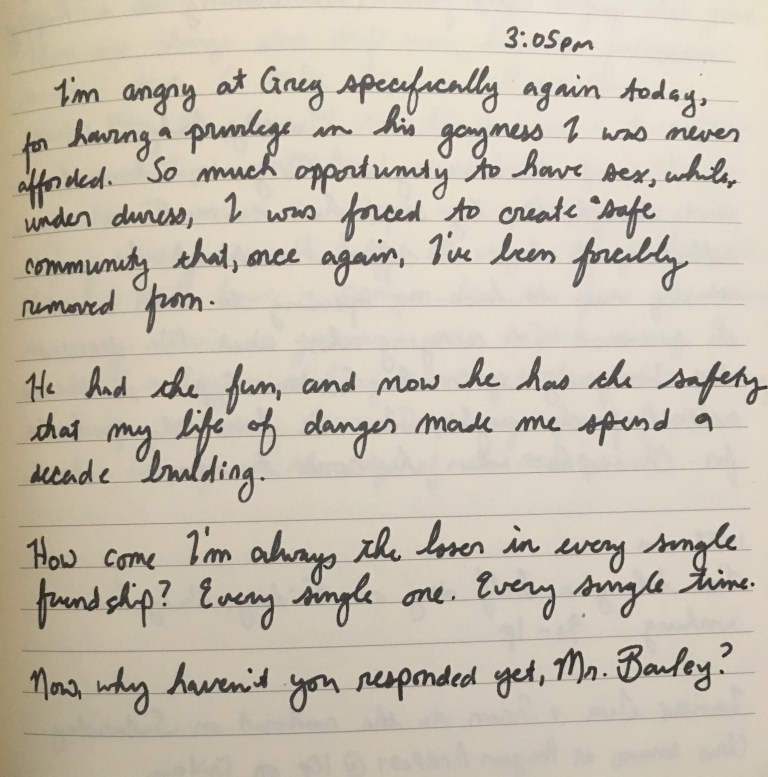 3:05pm
I'm angry at Greg specifically again today,
for having a privilege in his gayness I was never
afforded. So much opportunity to have sex, while,
under duress, I was forced to create "safe
community that, once again, I've been forcibly
removed from.
He had the fun, and now he has the safety
that my life of danger made me spend a
decade building.
How come I'm always the loser in every single
friendship? Every single one. Every single time.
Now, why haven't you responded yet, Mr. Bailey?